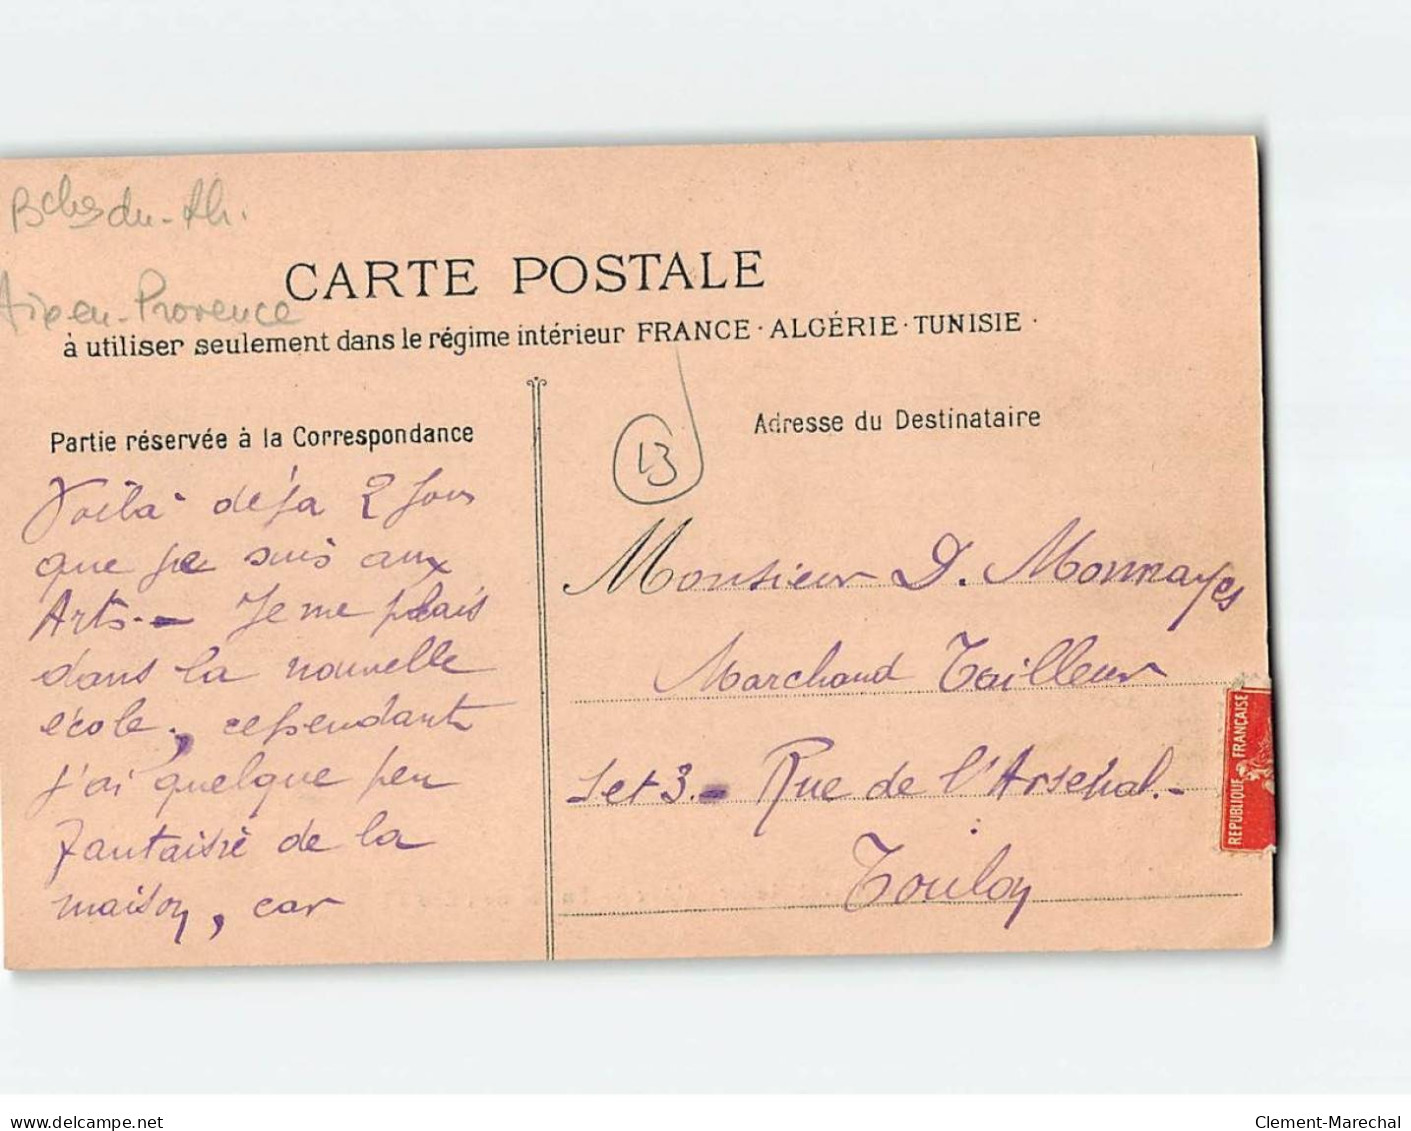 Bches du-Rh.
Aix en-Provence
CARTE POSTALE
à utiliser seulement dans le régime intérieur FRANCE · ALGÉRIE · TUNISIE ·
Partie réservée à la Correspondance
Adresse du Destinataire
13
Voilà déja 2 Jours
que je suis aux
Arts.- Je me plais
dans la nouvelle
école, cependant
j'ai quelque peu
fantaisie de la
maison, car
Monsieur D. Monnayes
Marchand Tailleur
1 et 3.- Rue de l'Arsenal.-
Toulon
REPUBLIQUE FRANÇAISE
www.delcampe.net
Clement-Marechal